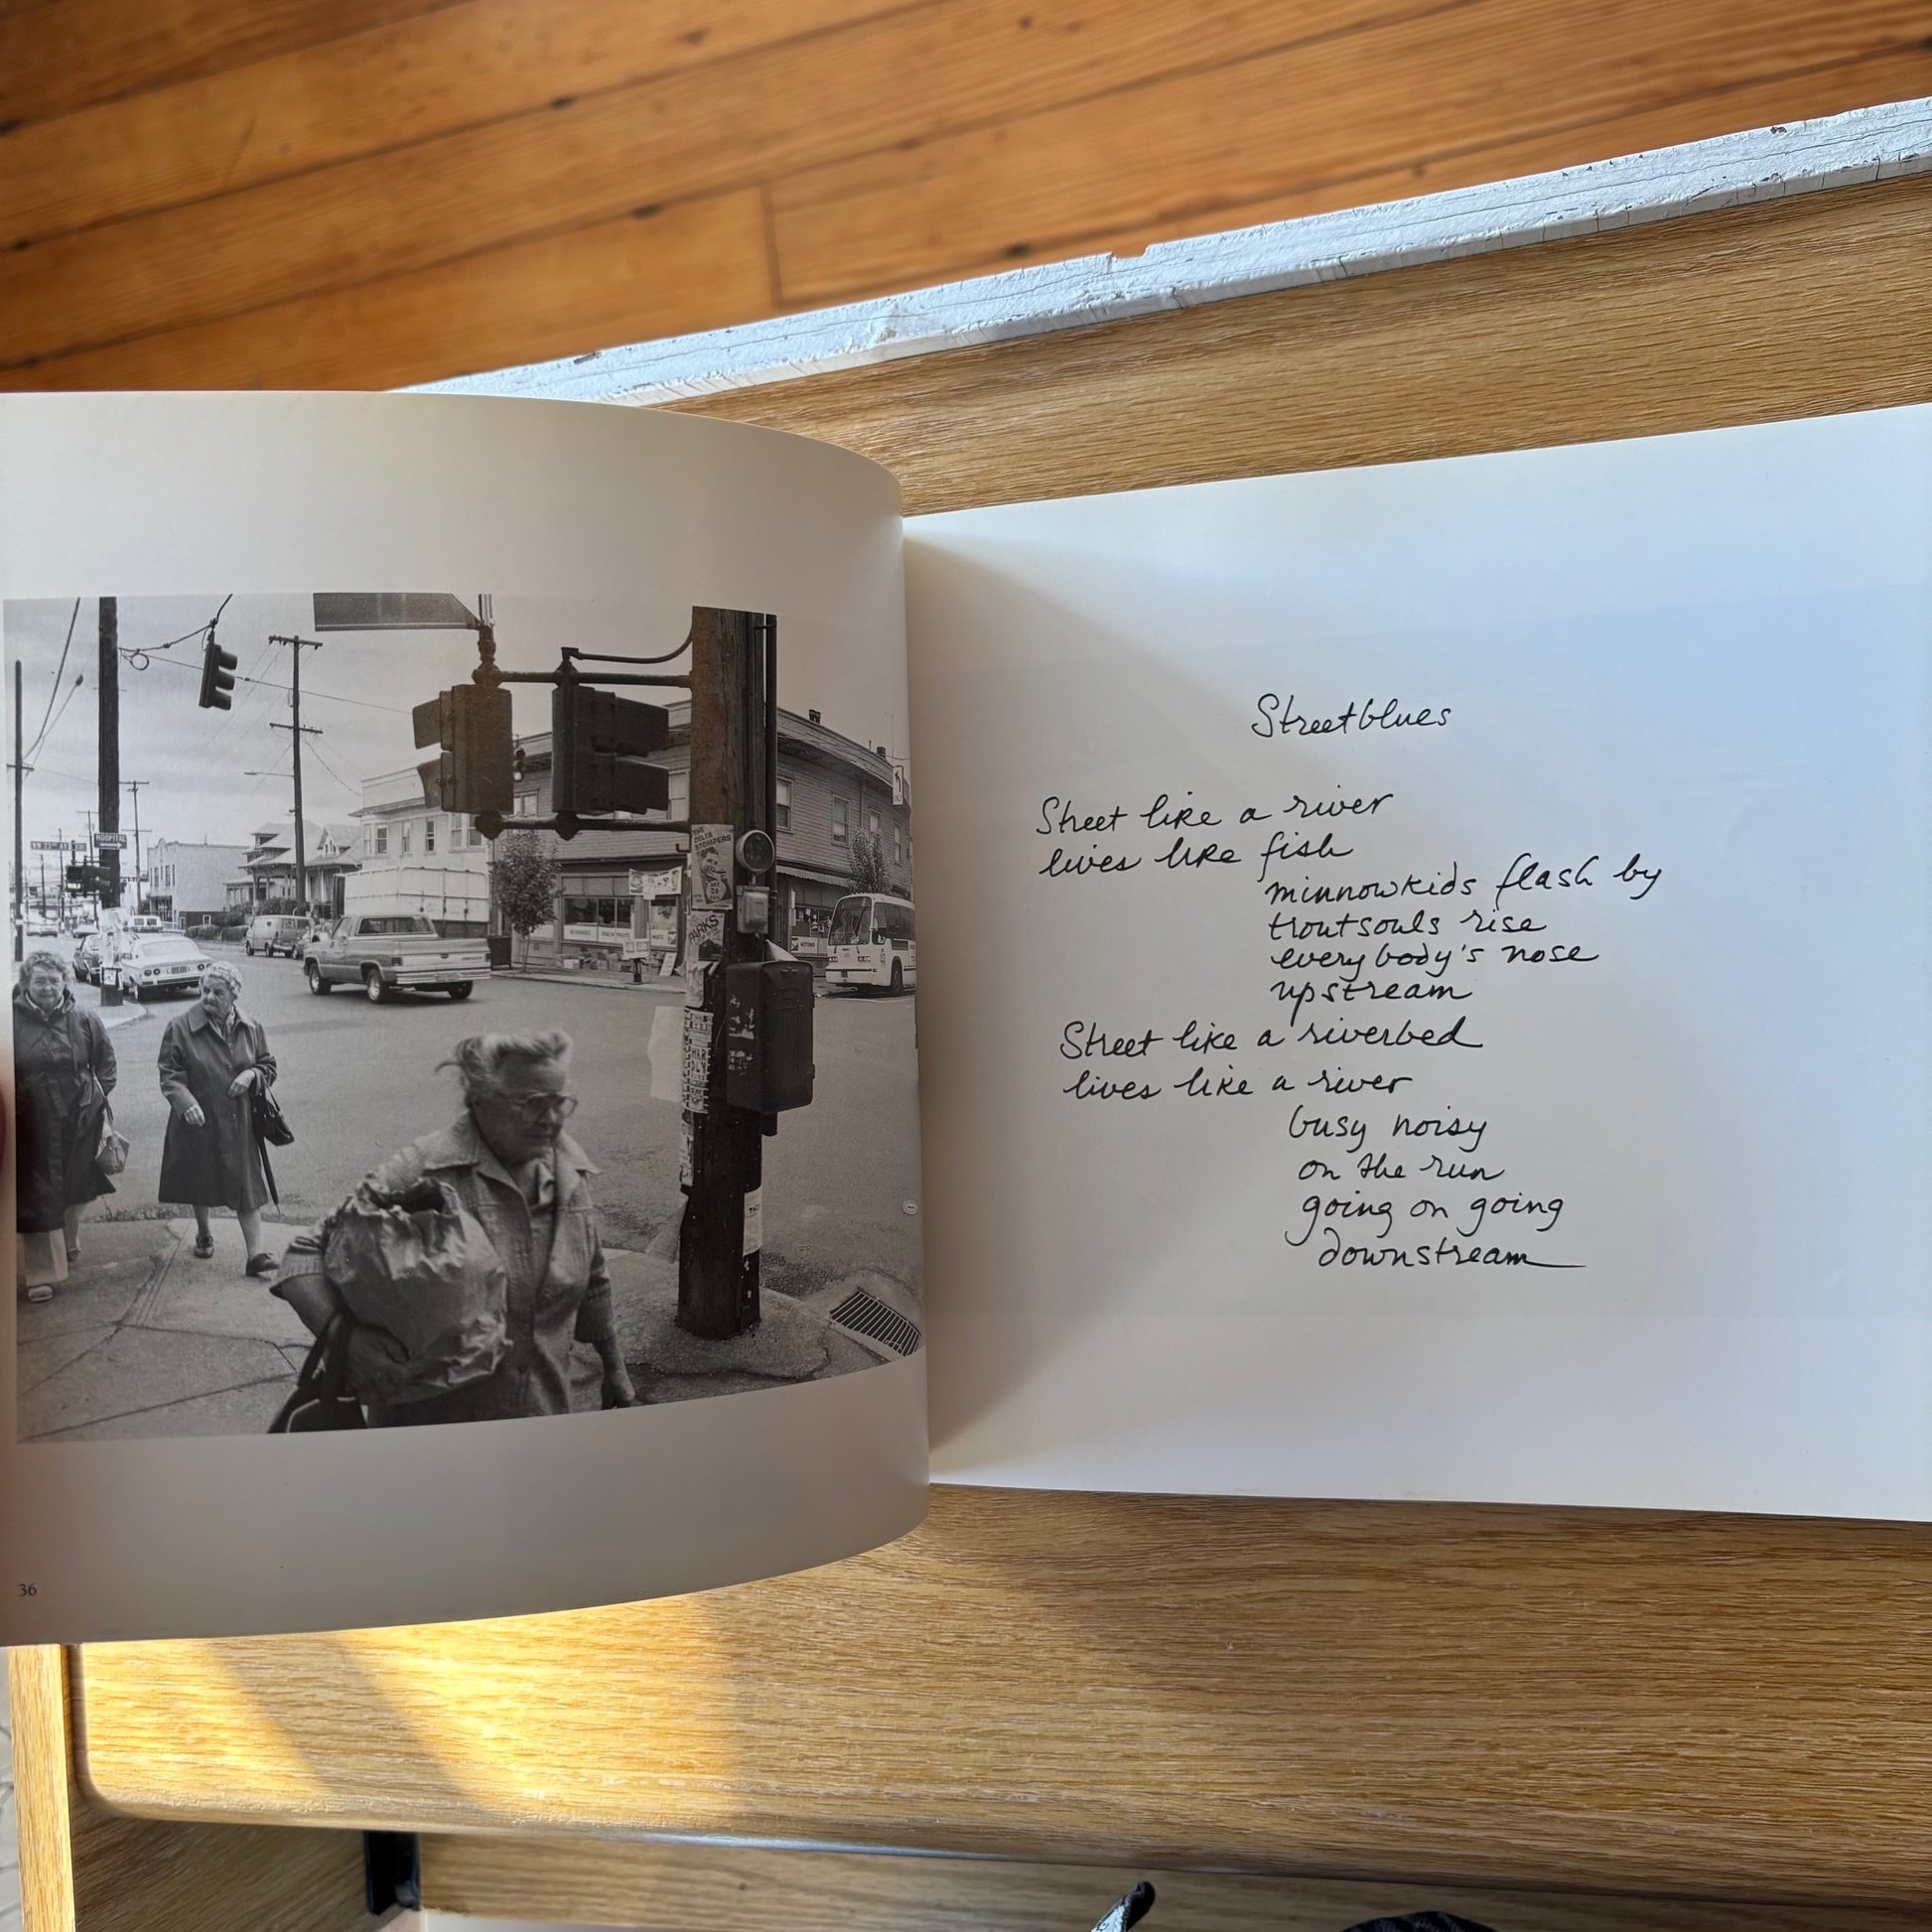 HOSPITAL
THE
DELTA
STOMPERS
PARKS
36
Streetblues
Street like a river
lives like fish
minnowkids flash by
troutsouls rise
everybody's nose
upstream
Street like a riverbed
lives like a river
busy noisy
on the run
going on going
downstream